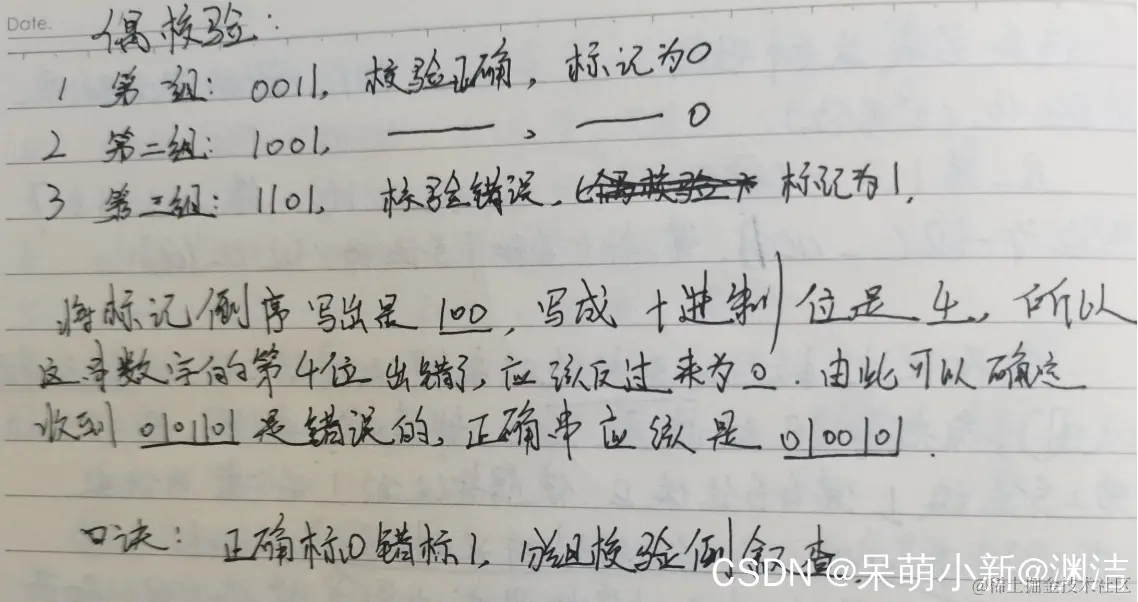 Date.
偶校验:
1 第一组: 0011, 校验正确, 标记为0
2 第二组: 1001, —— , —— 0
3 第三组: 1101, 校验错误, 标记为1,
将标记倒序写出是 100, 写成十进制位是 4, 所以
这串数字的第4位出错了, 应该反过来为0. 由此可以确定
收到 010110 是错误的, 正确串应该是 010010.
口诀: 正确标0错标1, 分组校验倒舍查.
CSDN @呆萌小新@渊洁
@稀土掘金技术社区